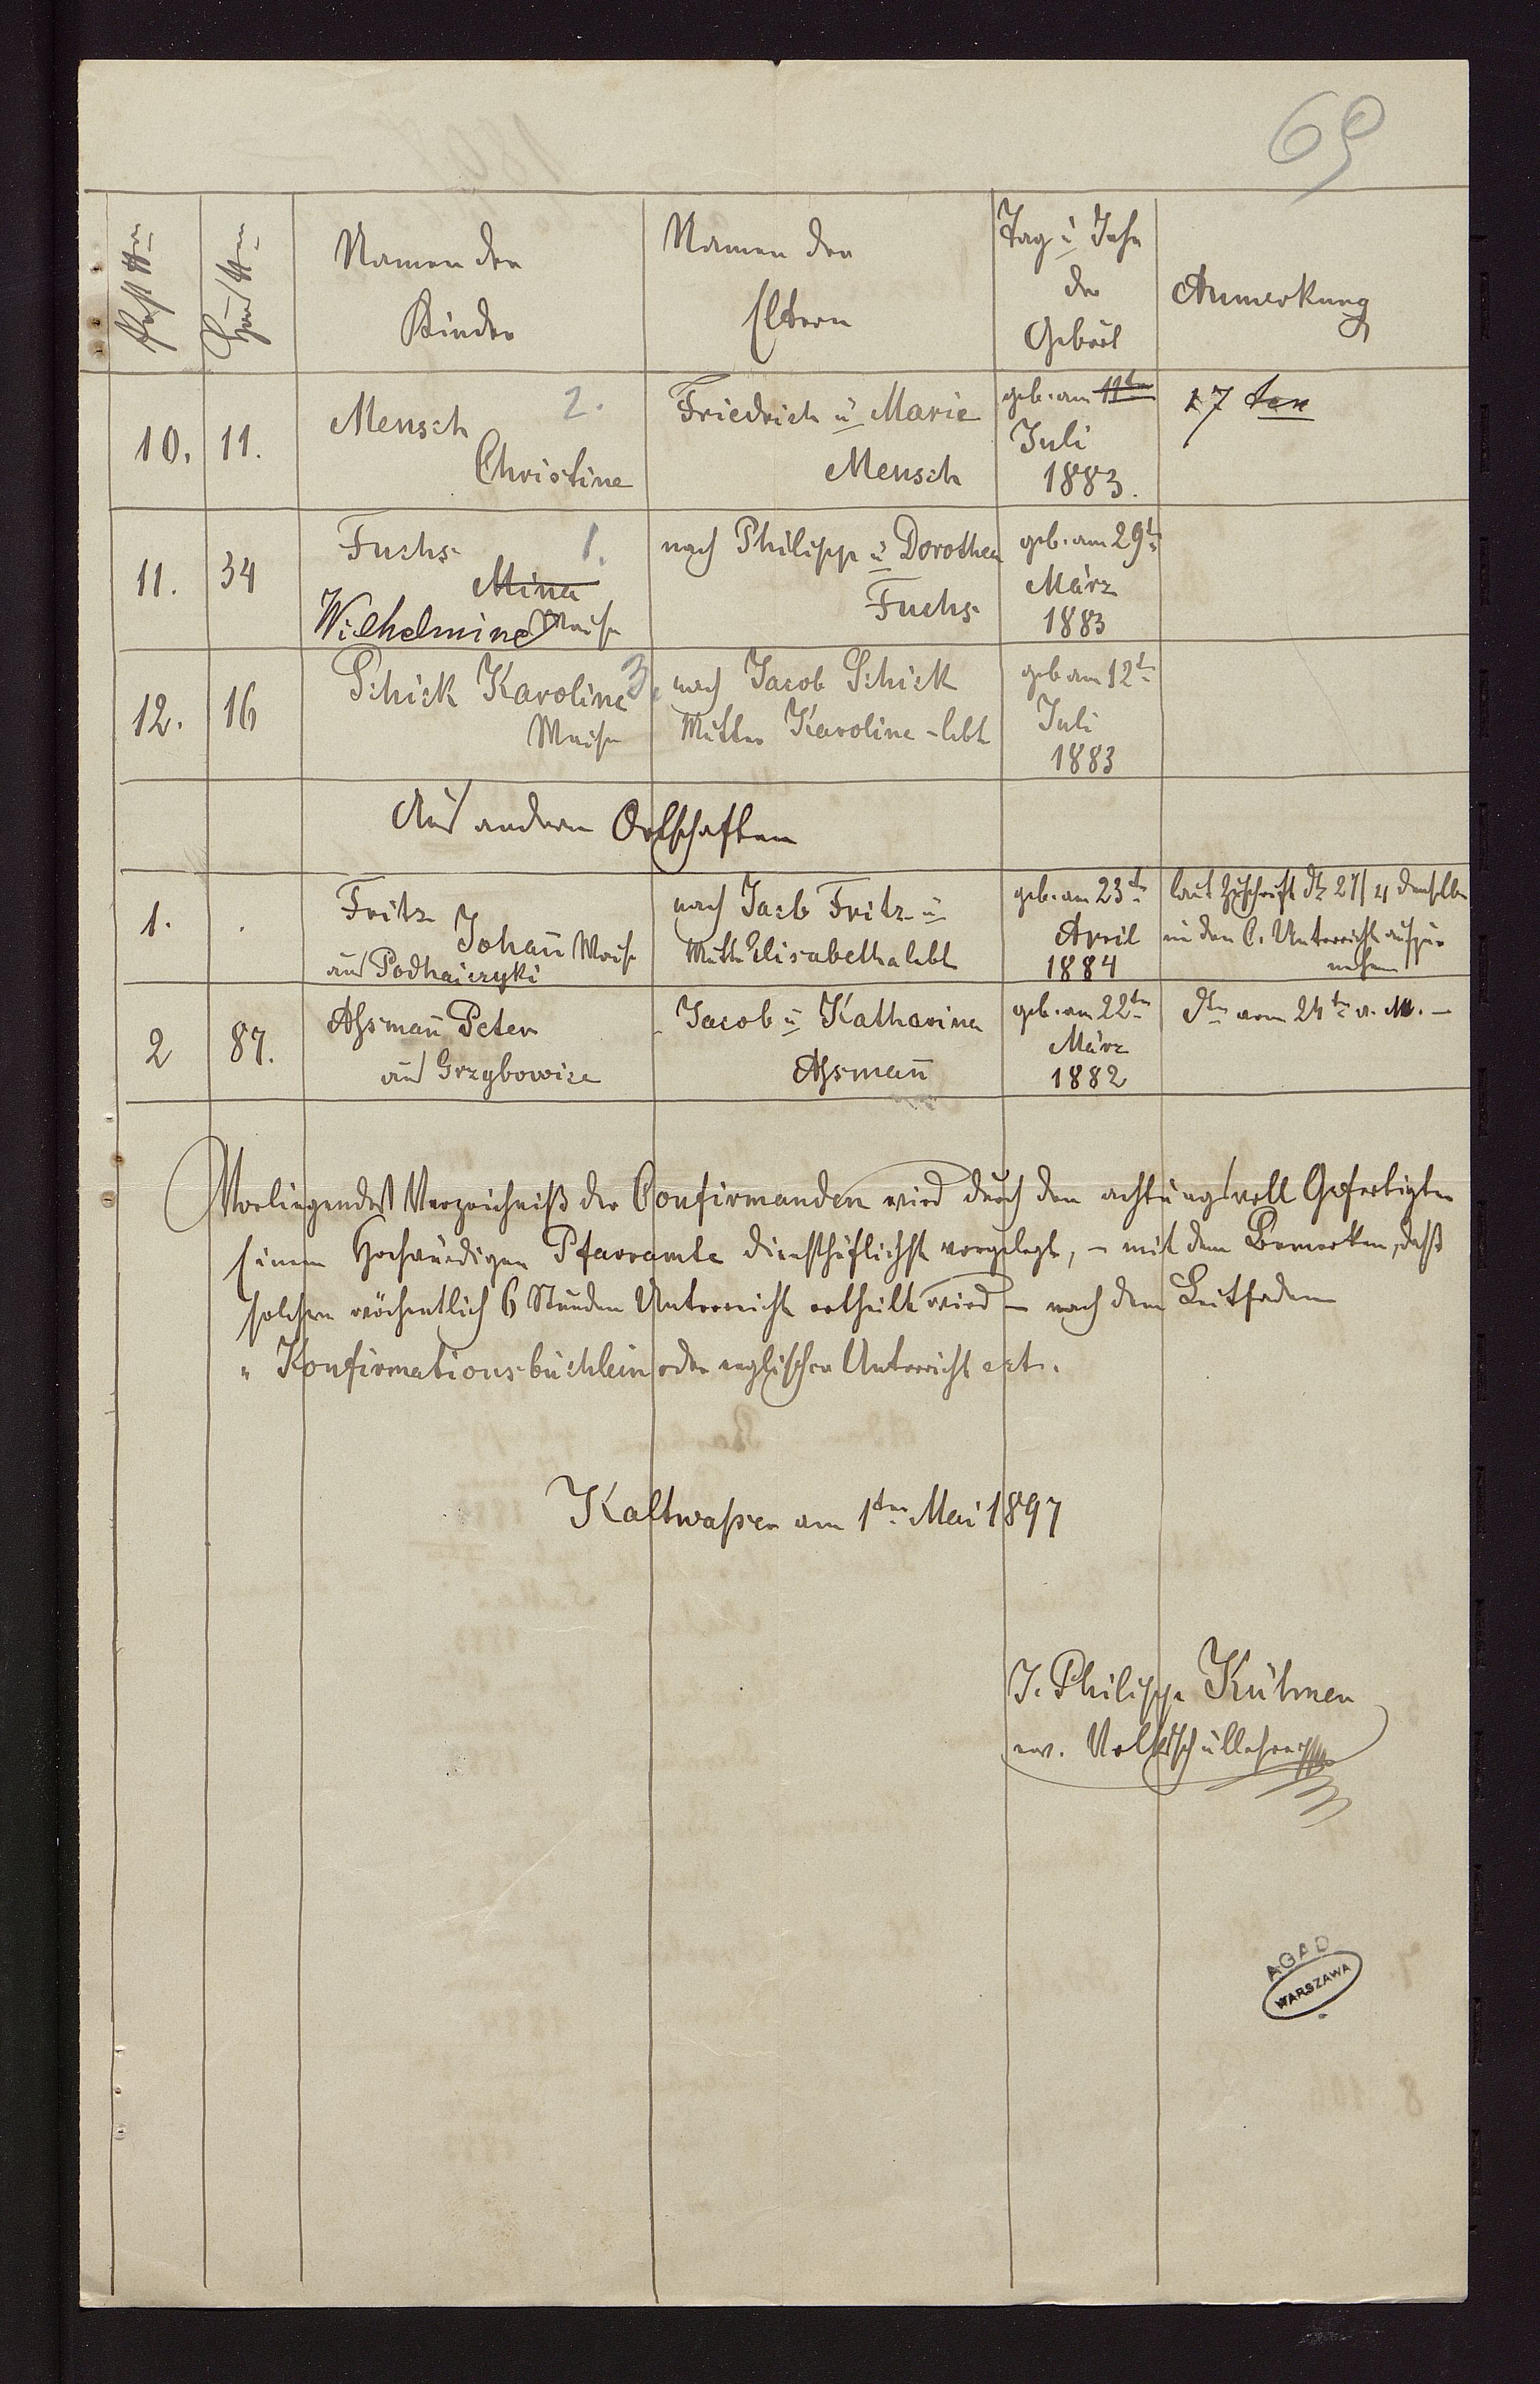 69
Post Nro
Haus Nro
Namen der
Kinder
Namen der
Eltern
Tag u Jahr
der
Geburt
Anmerkung
10. 11. Mensch 2.
Christine
Friedrich u Marie
Mensch
geb. am 11ten
Juli
1883.
17 ten
11. 34 Fuchs 1.
Mina
Wilhelmine Waise
nach Philipp u Dorothea
Fuchs
geb. am 29t
März
1883
12. 16 Schick Karoline 3.
Waise
nach Jacob Schick
Mutter Karoline - lebt
geb am 12t
Juli
1883
Aus andern Ortschaften
1. Fritz
Johan̄ Waise
aus Podhaiczyki
nach Jacb Fritz u
Mutt Elisabetha lebt
geb. am 23t
April
1884
laut Zuschrift dt 27/4 denselben
in den C. Unterricht aufzu-
nehmen
2 87. Aßman̄ Peter
aus Grzybowice
Jacob u Katharina
Aßman̄
geb. am 22ten
März
1882
dto vom 24t v. M. -
Vorliegendes Verzeichniß der Confirmanden wird durch den achtungsvoll Gefertigten
Einem Hochwürdigen Pfarramte diensthöflichst vorgelegt, - mit dem Bemerken, daß
solchen wöchentlich 6 Stunden Unterricht ertheilt wird - nach dem Leitfaden
" Konfirmationsbüchlein oder englischer Unterricht ect.
Kaltwasser am 1ten Mai 1897
J. Philipp Kühner
ev. Volksschullehrer
AGAD
WARSZAWA